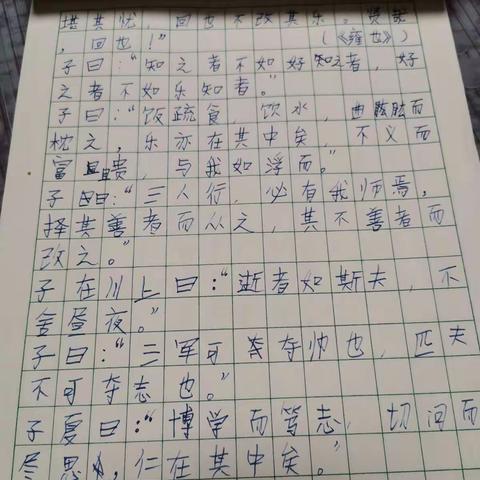 堪其忧，回也不改其乐。贤哉
，回也！”（《雍也》）
子曰：“知之者不如好知之者，好
之者不如乐知者。”
子曰：“饭疏食，饮水，曲肱而
枕之，乐亦在其中矣，不义而
富且贵，与我如浮而。”
子曰：“三人行，必有我师焉，
择其善者而从之，其不善者而
改之。”
子在川上曰：“逝者如斯夫，不
舍昼夜。”
子曰：“三军可夺帅也，匹夫
不可夺志也。”
子夏曰：“博学而笃志，切问而
思，仁在其中矣。”